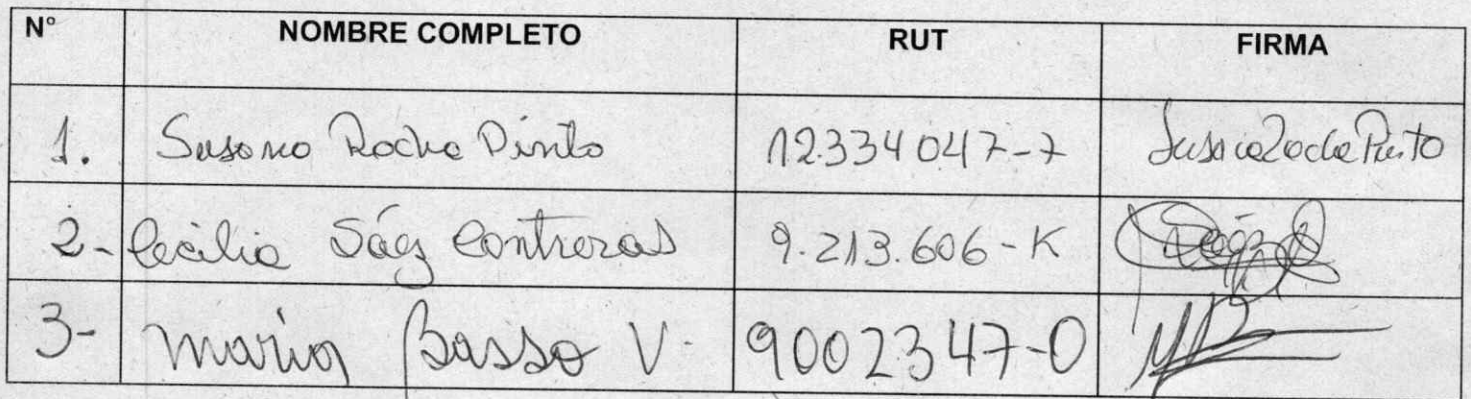 N° NOMBRE COMPLETO RUT FIRMA
1. Susana Rocha Pinto 12.334047-7 Susana Rocha Pinto
2- Cecilia Sáez Contreras 9.213.606-K
3- Maria Basso V. 9002347-0